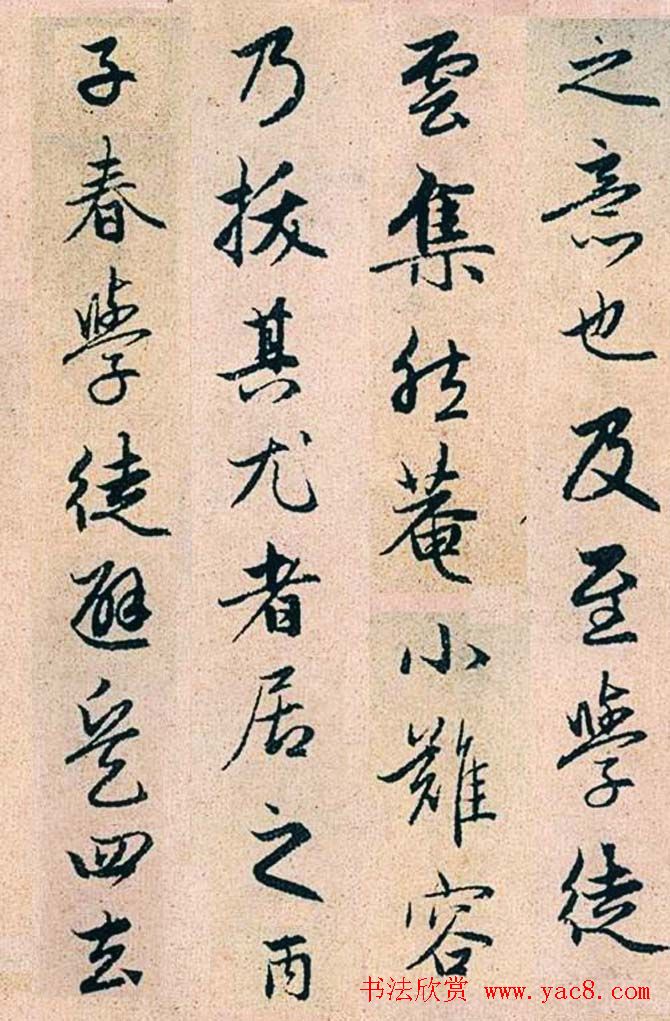 之意也及至學徒
雲集然菴小難容
乃拔其尤者居之丙
子春學徒避兵四去
书法欣赏 www.yac8.com